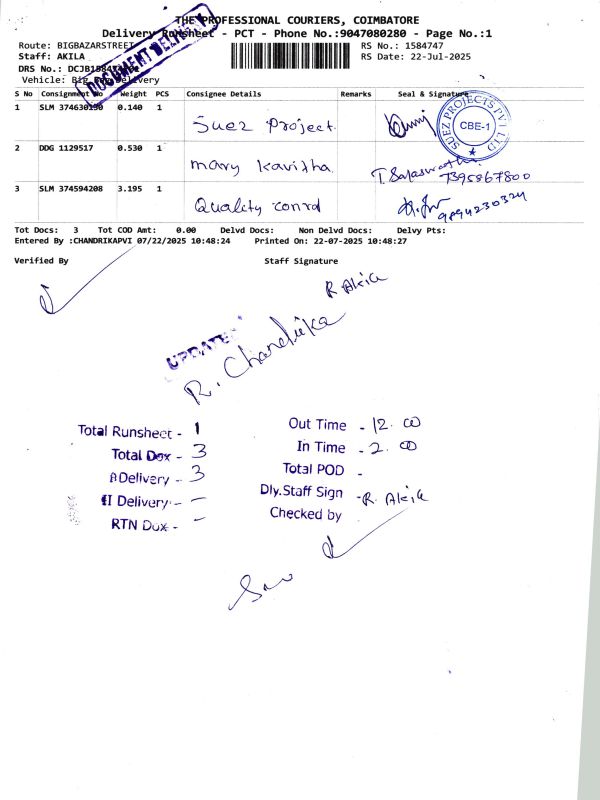 THE PROFESSIONAL COURIERS, COIMBATORE
Delivery Runsheet - PCT - Phone No.:9047080280 - Page No.:1
Route: BIGBAZARSTREET
RS No.: 1584747
Staff: AKILA
RS Date: 22-Jul-2025
DRS No.:
Vehicle: Delivery
DOCUMENT DELIVERY
S No Consignment No Weight PCS Consignee Details Remarks Seal & Signature
1 SLM 0.140 1 Suez Project.
SUEZ PROJECTS PVT LTD
CBE-1
2 DDG 1129517 0.530 1 mary kavitha
7395867800
3 SLM 374594208 3.195 1 Quality
9894230324
Tot Docs: 3 Tot COD Amt: 0.00 Delvd Docs: Non Delvd Docs: Delvy Pts:
Entered By :CHANDRIKAPVI 07/22/2025 10:48:24 Printed On: 22-07-2025 10:48:27
Verified By Staff Signature
R Akila
UPDATED
R. Chandrika
Total Runsheet - 1
Total Dox - 3
Delivery - 3
II Delivery - –
RTN Dox - –
Out Time - 12. 00
In Time - 2. 00
Total POD -
Dly.Staff Sign - R. Akila
Checked by